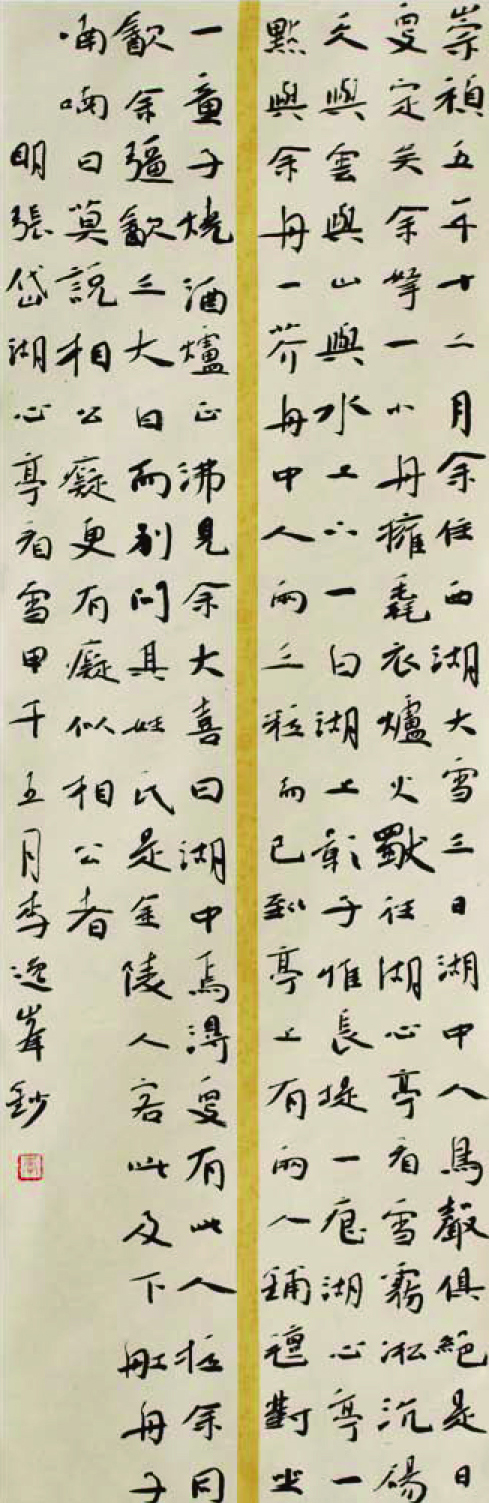 崇禎五年十二月余住西湖大雪三日湖中人鳥聲俱絕是日
更定矣余拏一小舟擁毳衣爐火獨往湖心亭看雪霧凇沆碭
天與雲與山與水上下一白湖上影子惟長堤一痕湖心亭一
點與余舟一芥舟中人兩三粒而已到亭上有兩人鋪氈對坐
一童子燒酒爐正沸見余大喜曰湖中焉得更有此人拉余同
飲余强飲三大白而別問其姓氏是金陵人客此及下船舟子
喃喃曰莫說相公癡更有癡似相公者
明張岱湖心亭看雪甲午五月李逸峰鈔